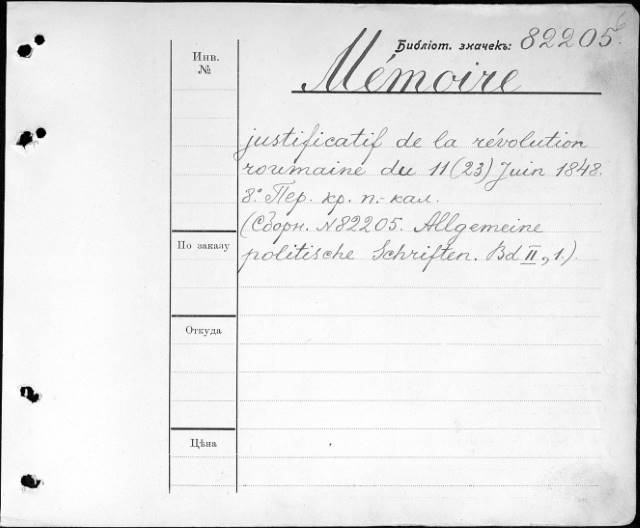 Библіот. значекъ: 82205.
Mémoire
Инв.
№
justificatif de la révolution
roumaine du 11 (23) Juin 1848.
8° Пер. кр. п.-кал.
(Сборн. № 82205. Allgemeine
По заказу
politische Schriften. Bd II, 1.).
Откуда
Цѣна